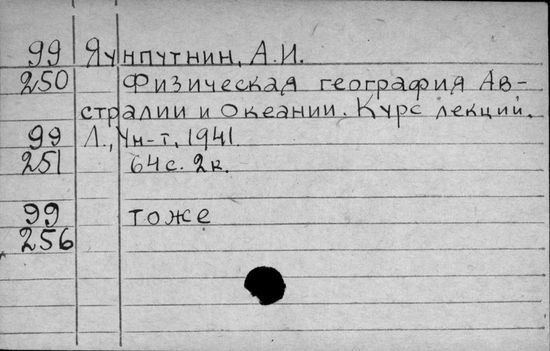 99 Яунпутнин, А.И.
250 Физическая география Ав-
стралии и Океании. Курс лекций.
99 Л., Ун-т, 1941.
251 64с. 2к.
99 тоже
256